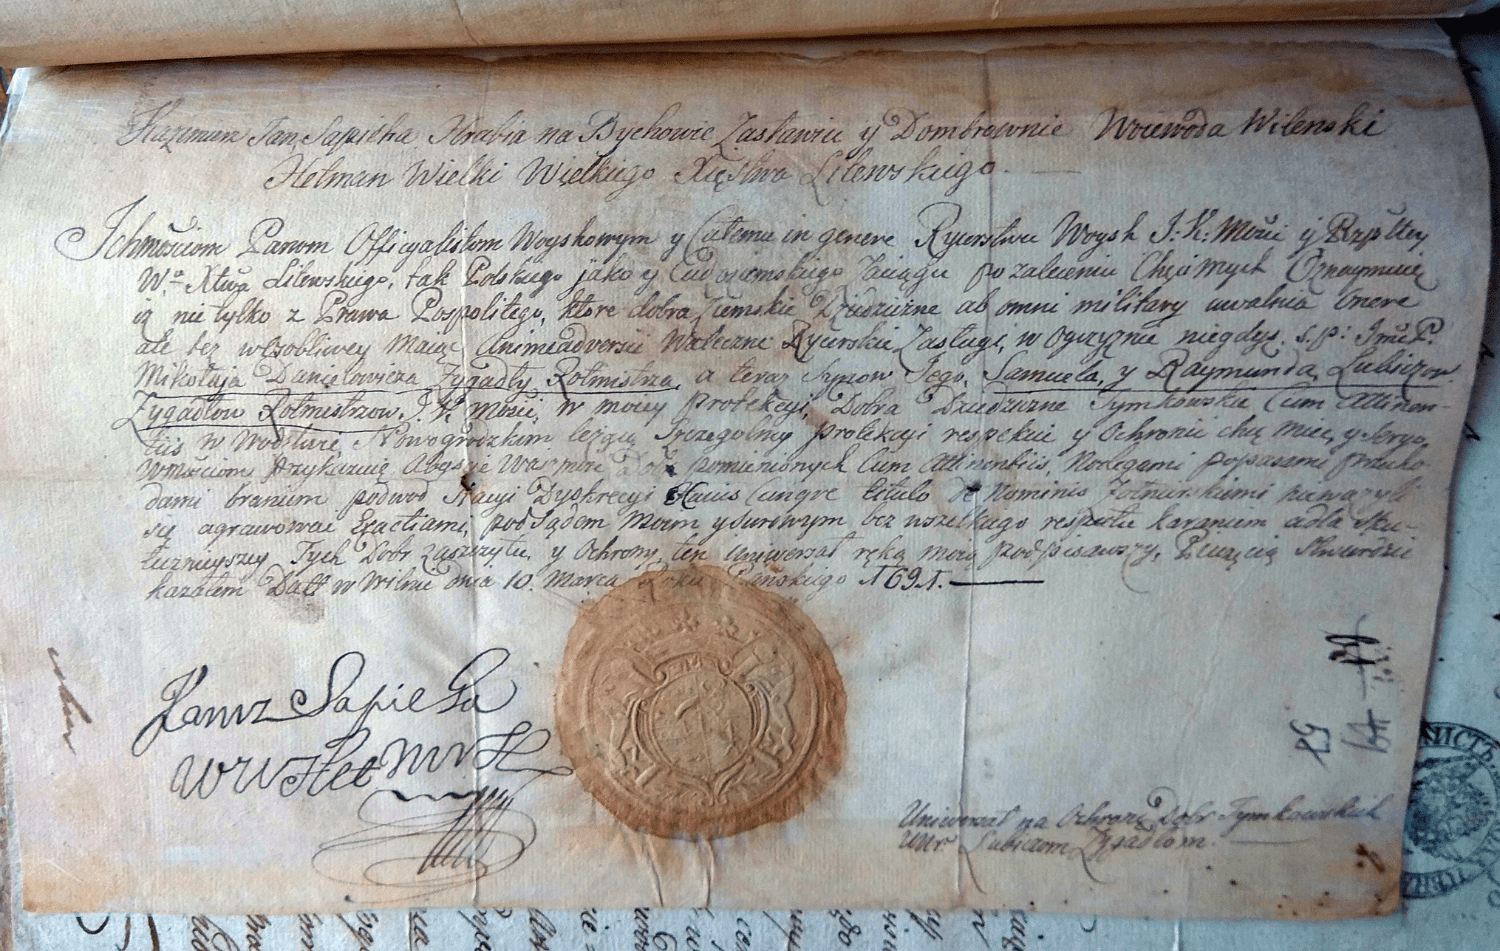 Kazimierz Jan Sapieha Hrabia na Bychowie Zasławiu y Dombrownie Woiewoda Wilenski
Hetman Wielki Wielkiego Xięstwa Litewskiego.
Ichmościom Panom Officyalistom Woyskowym y Całemu in genere Rycerstwu Woysk J. K. Mości y Rzpltey
W.º Xtwa Litewskiego, tak Polskiego jako y Cudzoziemskiego Zaciągu po zaleceniu Chęci mych Oznaymuię
iż nie tylko z Prawa Pospolitego, które dobra Ziemskie Dziedziczne ab omni military uwalnia onere
ale bez wosobliwey maiąc Animadversii Waleczne Rycerskie Zasługi, w Oyczyznie niegdys. s. p: Jmći P.
Mikołaja Danielowicza Zygadły Rotmistrza, a teraz Synow Jego, Samuela, y Raymunda Lubiczow
Zygadłow Rotmistrzow J. K. Mości, w moiey Protekcyi, Dobra Dziedziczne Tymkowskie Cum Attinen-
tiis w Nowogrodzkim leżące Szczegolney protekcyi respekcie y Ochronie chcę miec, y seryo
Wmościom Przykazuię Abyście Waszmość dobr pomienionych Cum Attinentiis, Noclegami popasami przecho-
dami braniem podwod Stacyi Dyskrecyi Hauis Cunqve titulo et Nominis Żołnierskiemi nieważyli
się agrawować Exactiami, pod Sądem Moim y surowym bez wszelkiego respektu karaniem adla sku-
tecznieyszey Tych Dobr zaszczytu, y Ochrony, ten Uniwersał ręką moią podpisawszy, Pieczęcią stwierdzic
kazałem Datt w Wilnie dnia 10. Marca Roku Pańskiego 1691.
Kazimierz Sapieha
W W Het W X L
Uniwersał na Ochronę Dobr Tymkowskich
Lubiczom Zygadłom.